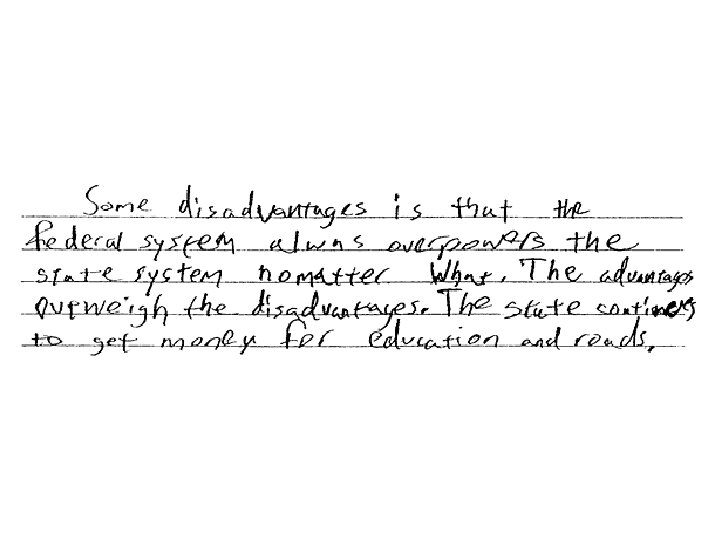 Some disadvantages is that the
federal system alwas overpowers the
state system nomatter what. The advantages
outweigh the disadvantages. The state continues
to get money for education and roads.